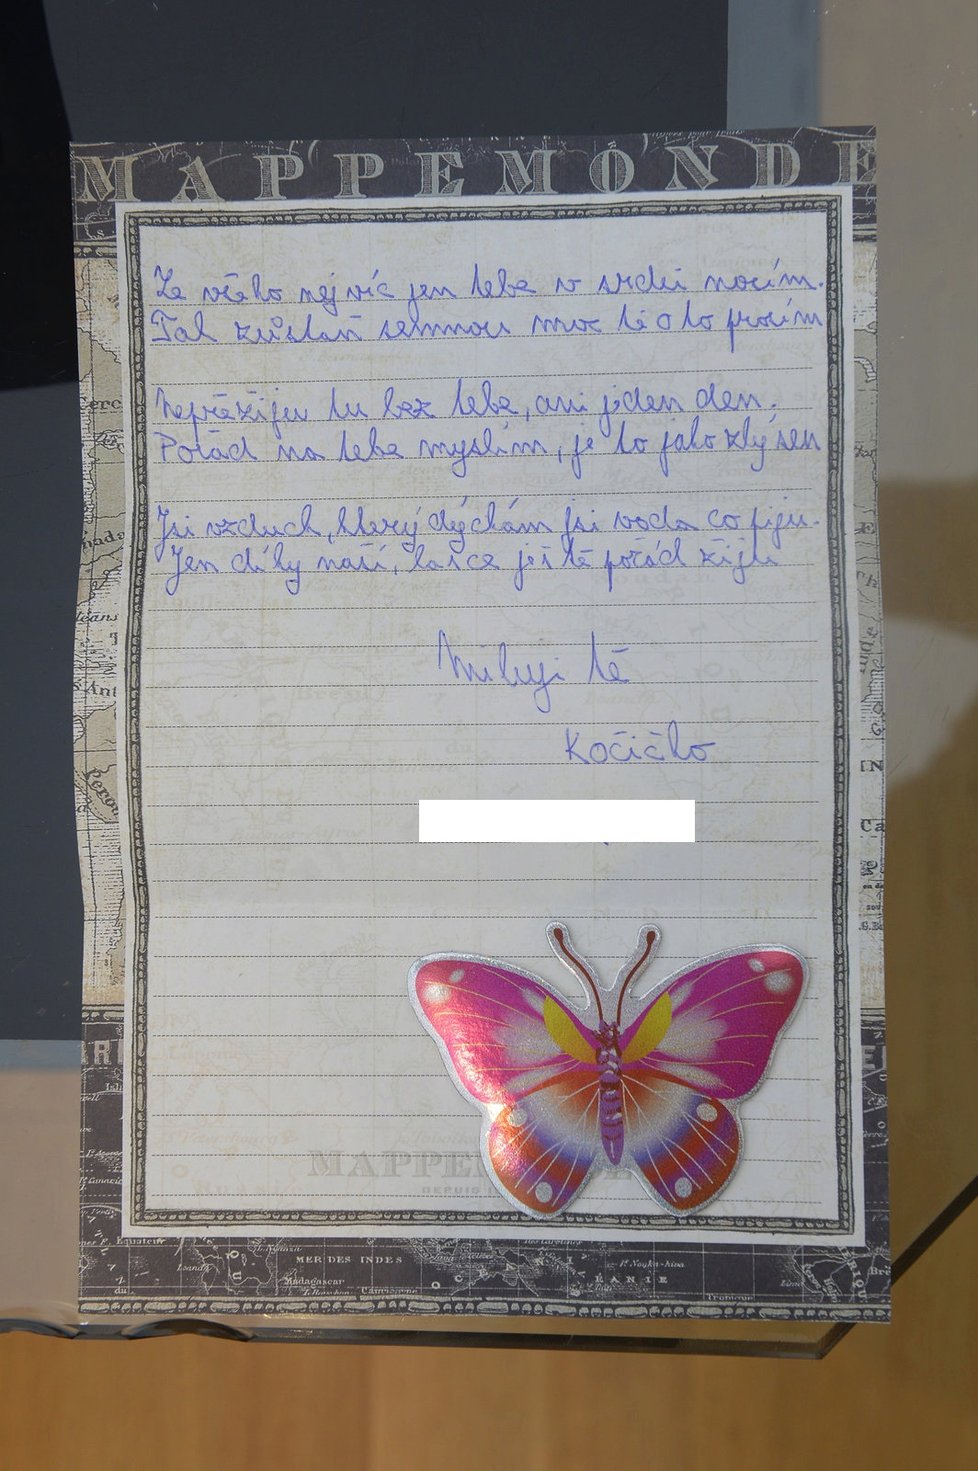 MAPPEMONDE
Ze všeho nejvíc jen tebe v srdci nosím.
Tak zůstaň semnou moc tě o to prosím
Nepřežiju tu bez tebe, ani jeden den.
Pořád na tebe myslím, je to jako zlý sen
Jsi vzduch, který dýchám jsi voda co piju.
Jen díky naší, lásce ještě pořád žiju
Miluji tě
Kočičko
MAPPEM
DEPUIS
MER DES INDES
Madagascar
OCÉANIE